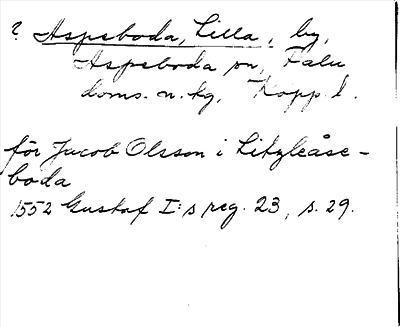 ? Aspeboda, Lilla, by,
Aspeboda sn, Falu
doms. n. hg, Kopp. l.
för Jacob Olsson i Litzleåse-
boda
1552 Gustaf I:s reg. 23, s. 29.